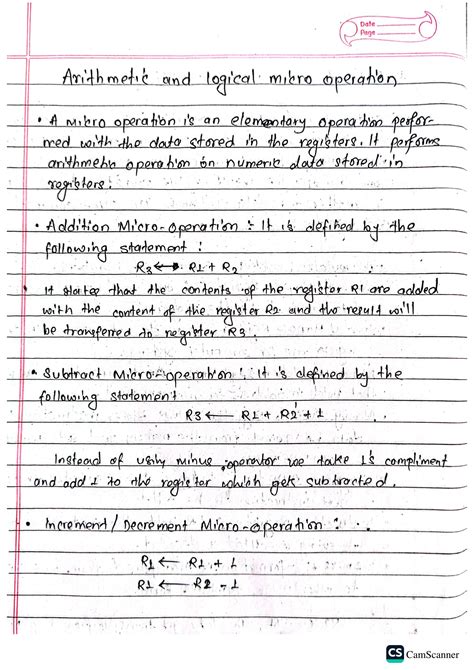 Date
Page
Arithmetic and logical mikro operation
• A mikro operation is an elementary operation perfor-
med with the data stored in the registers. It performs
arithmetic operation on numeric data stored in
registers:
• Addition Micro-operation : It is defined by the
following statement :
R3 ← R1 + R2
• It states that the contents of the register R1 are added
with the content of the register R2 and the result will
be transferred to register R3.
• Subtract Micro-operation : It is defined by the
following statement
R3 ← R1 + R2' + 1
Instead of using minus operator we take 1's compliment
and add 1 to the register which gets subtracted.
• Increment / Decrement Micro-operation :
R1 ← R1 + 1
R1 ← R2 - 1
CS CamScanner